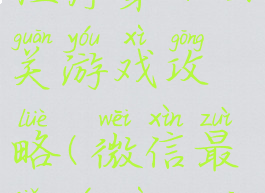 guān yóu xì gōng
关游戏攻
lüè wēi xìn zuì
略(微信最